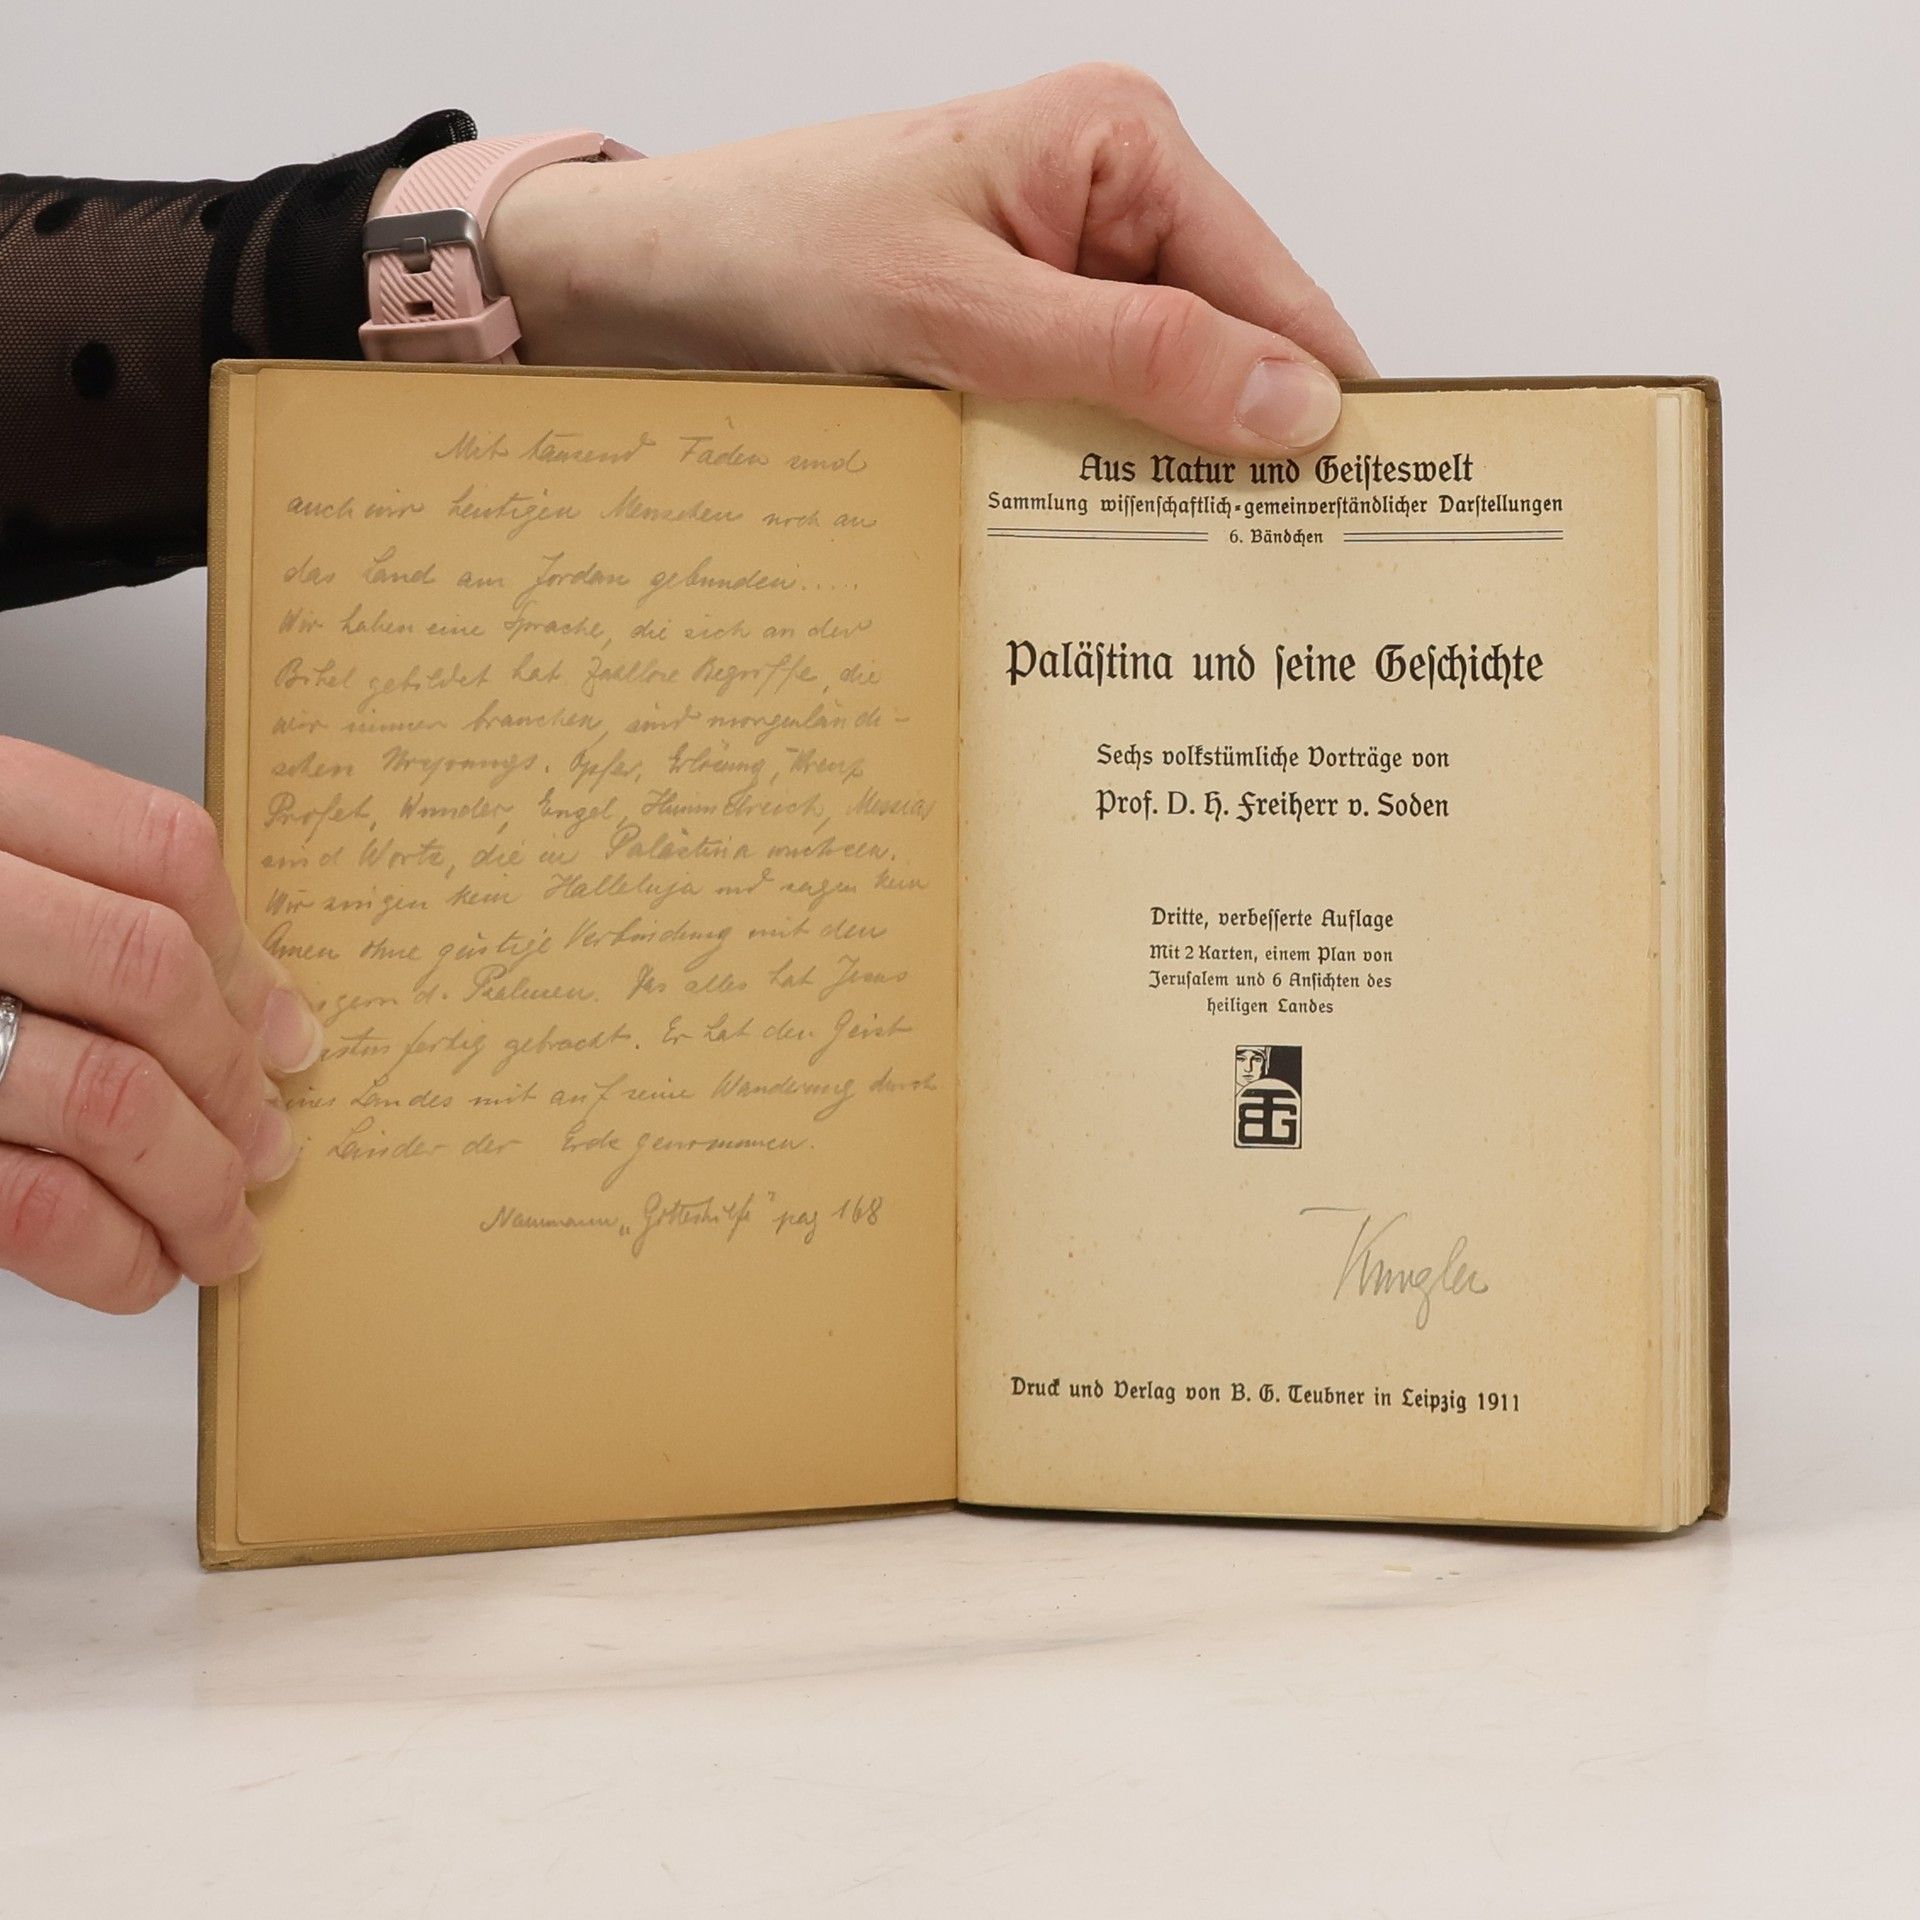 Mit tausend Fäden sind
auch wir heutigen Menschen noch an
das Land am Jordan gebunden.....
Wir haben eine Sprache, die sich an der
Bibel gebildet hat Zahllose Begriffe, die
wir immer brauchen, sind morgenländi-
schen Ursprungs. Opfer, Erlösung, Kreuz
Profet, Wunder, Engel, Himmelreich, Messias
sind Worte, die in Palästina wuchsen.
Wir singen kein Halleluja und sagen kein
Amen ohne geistige Verbindung mit den
gern d. Psalmen. Das alles hat Jesus
istus fertig gebracht. Er hat den Geist
ines Landes mit auf seine Wanderung durch
Länder der Erde genommen.
Naumann „Gotteshilfe" pag 168
Aus Natur und Geisteswelt
Sammlung wissenschaftlich-gemeinverständlicher Darstellungen
6. Bändchen
Palästina und seine Geschichte
Sechs volkstümliche Vorträge von
Prof. D. H. Freiherr v. Soden
Dritte, verbesserte Auflage
Mit 2 Karten, einem Plan von
Jerusalem und 6 Ansichten des
heiligen Landes
BTG
Druck und Verlag von B. G. Teubner in Leipzig 1911